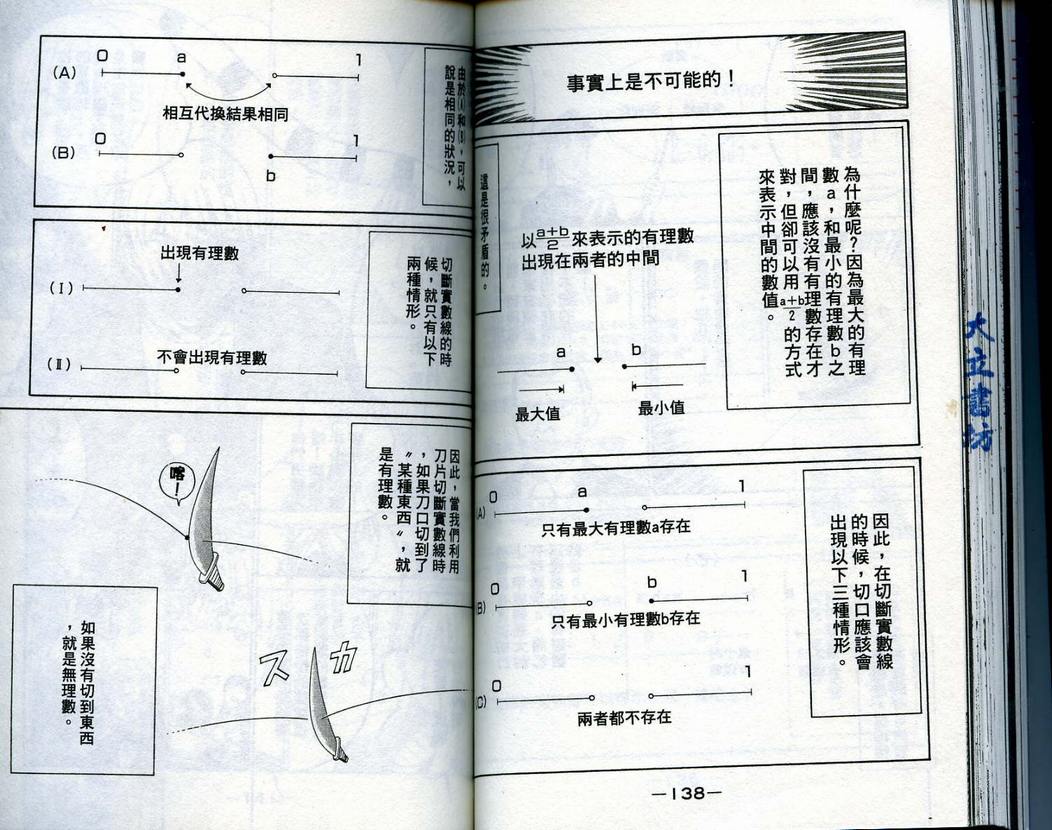 事實上是不可能的！
為什麼呢？因為最大的有理
數a，和最小的有理數b之
間，應該沒有有理數存在才
對，但卻可以用a+b/2的方式
來表示中間的數值。
以a+b/2來表示的有理數
出現在兩者的中間
a
b
最大值
最小值
這是很矛盾的。
因此，在切斷實數線
的時候，切口應該會
出現以下三種情形。
(A)
0
a
1
只有最大有理數a存在
(B)
0
b
1
只有最小有理數b存在
(C)
0
1
兩者都不存在
—138—
由於(A)和(B)，可以
說是相同的狀況，
(A)
0
a
1
相互代換結果相同
(B)
0
b
1
切斷實數線的時
候，就只有以下
兩種情形。
出現有理數
(I)
不會出現有理數
(II)
因此，當我們利用
刀片切斷實數線時
，如果刀口切到了
〝某種東西〞，就
是有理數。
喀！
スカ
如果沒有切到東西
，就是無理數。
大立書坊